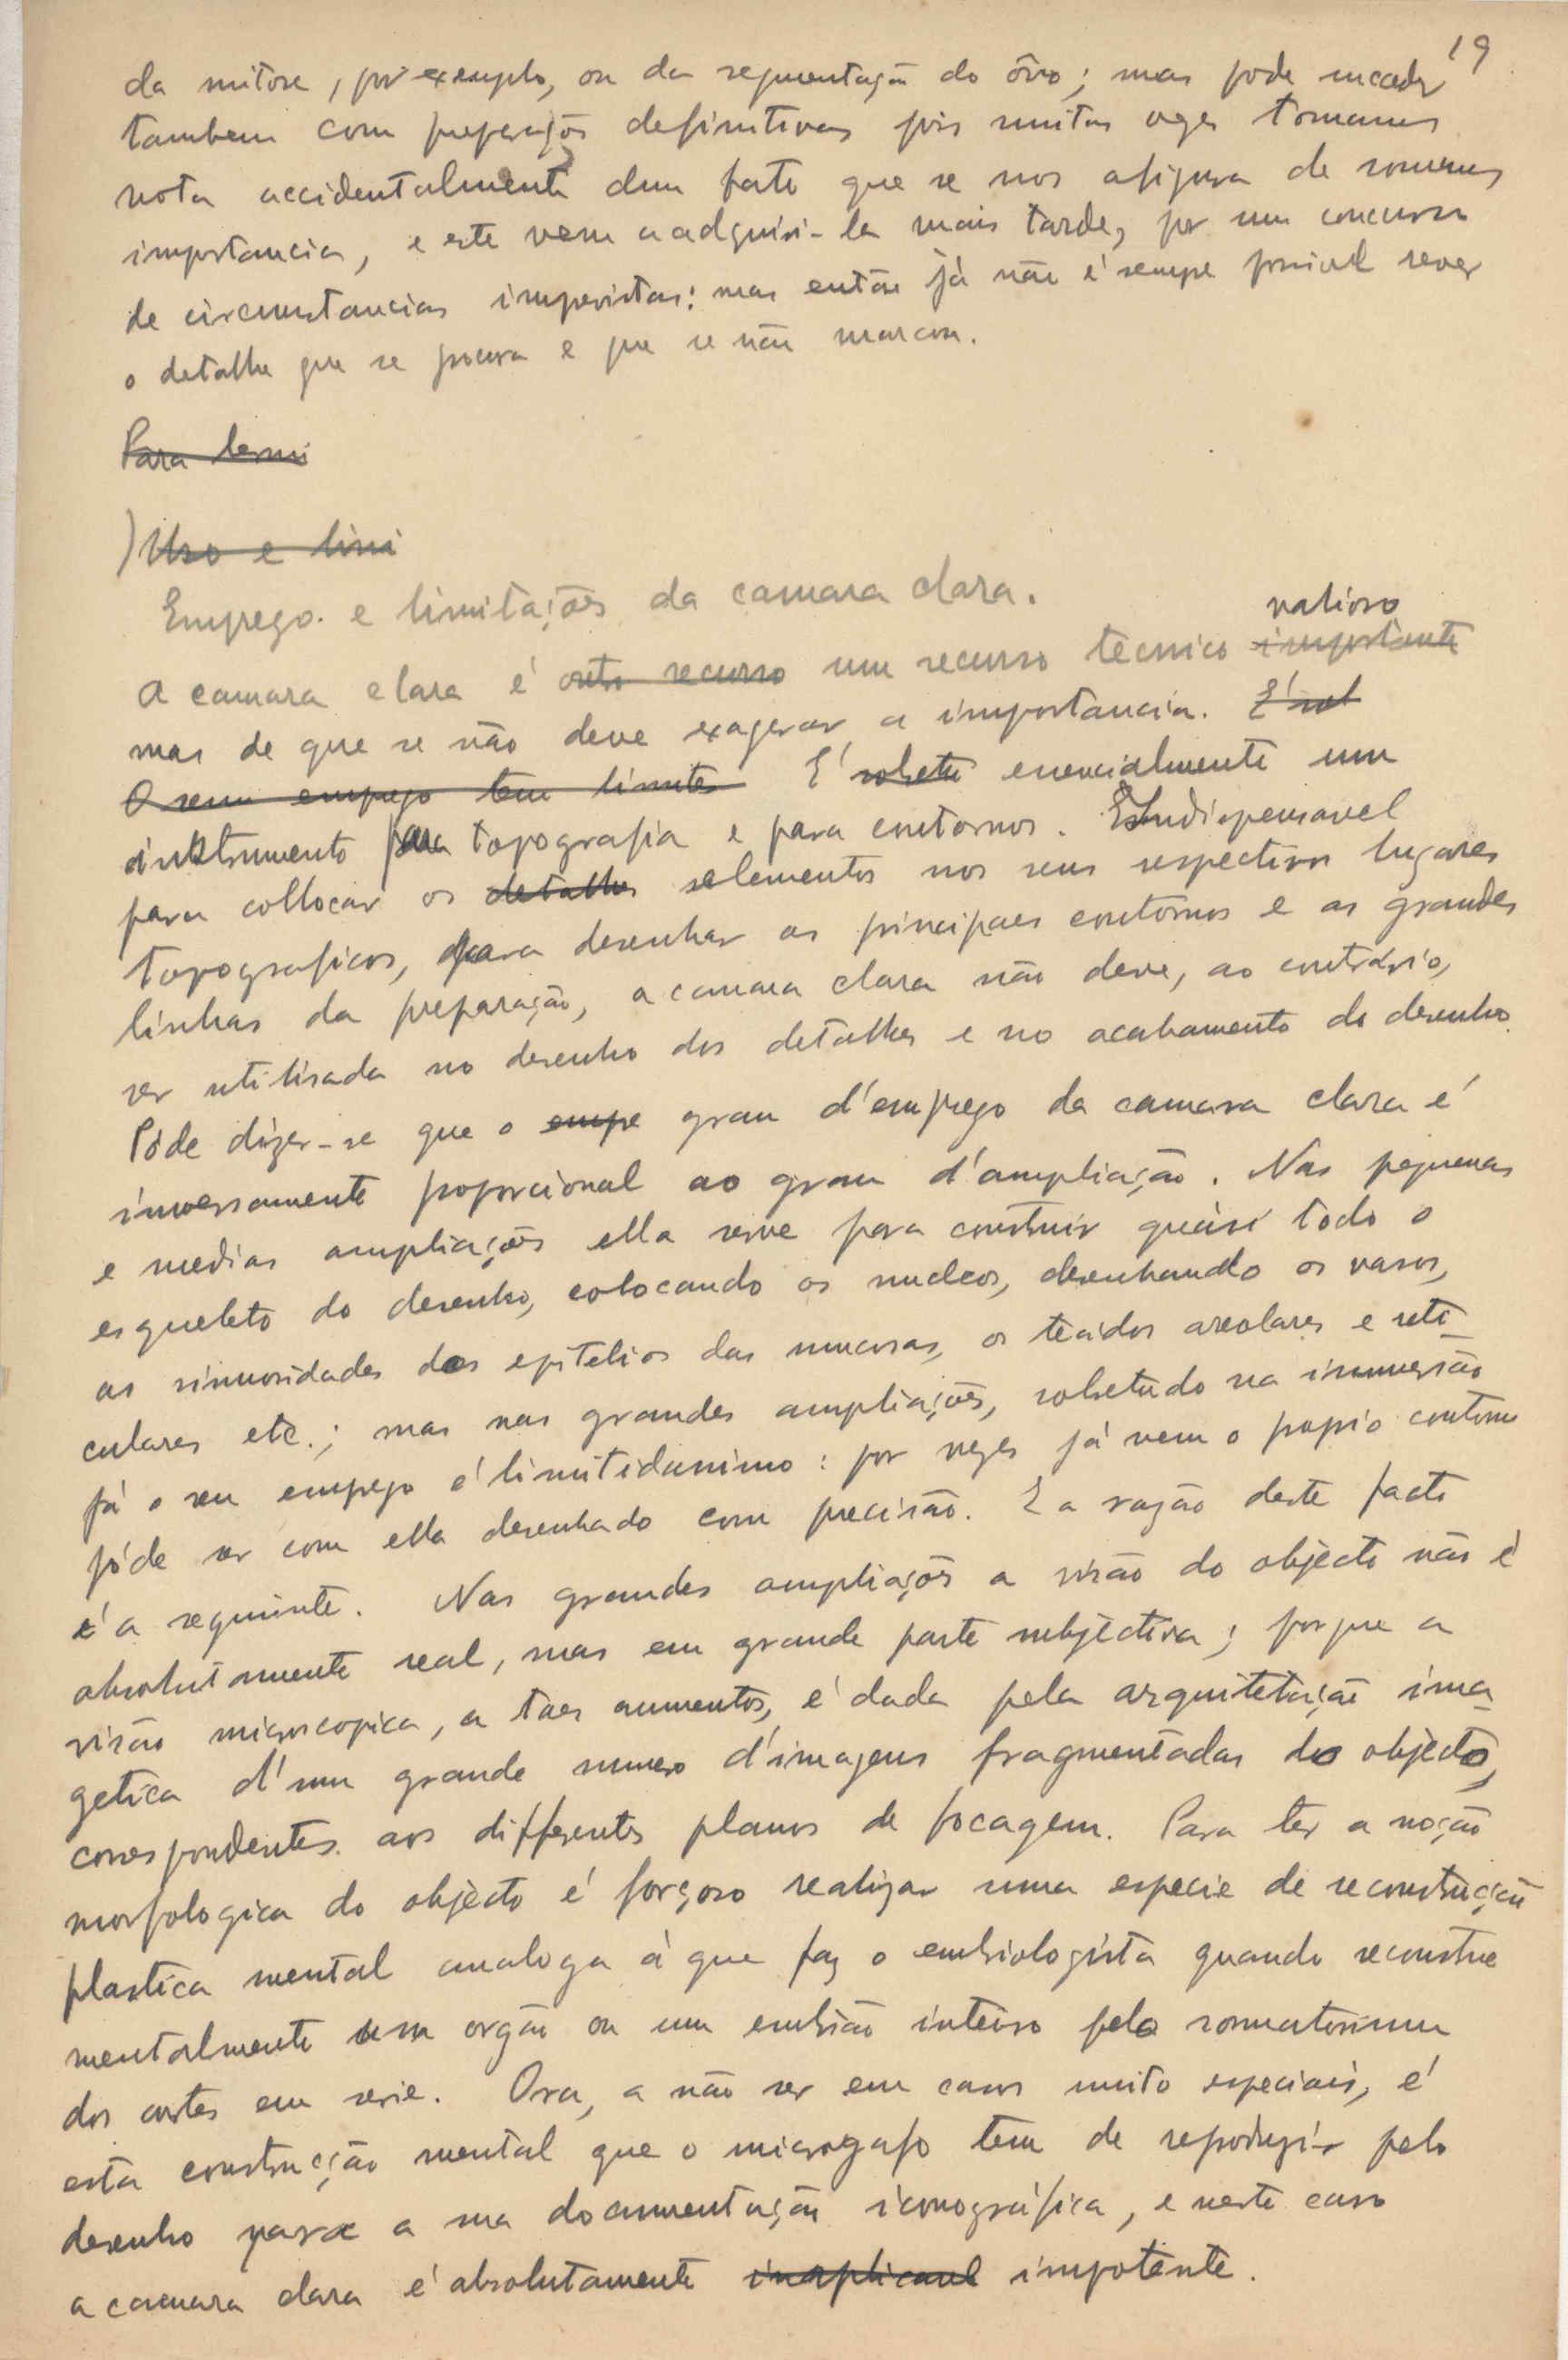 19
da mitose, por exemplo, ou da segmentação do ôvo; mas pode succeder
tambem com preparações definitivas pois muitas vezes tomamos
nota accidentalmente dum facto que se nos afigura de somenos
importancia, e este vem a adquiri-la mais tarde, por um concurso
de circumstancias imprevistas: mas então já não é sempre possivel rever
o detalhe que se procura e que se não marcou.
Para termi
) Uso e limi
Emprego e limitações da camara clara.
valioso
A camara clara é outro recurso um recurso tecnico importante
mas de que se não deve exagerar a importancia. É sob
O seu emprego tem limites É sobretu essencialmente um
instrumento para topografia e para contornos. Indispensavel
para collocar os detalhes elementos nos seus respectivos lugares
topograficos, para desenhar os principaes contornos e as grandes
linhas da preparação, a camara clara não deve, ao contrário,
ser utilisada no desenho dos detalhes e no acabamento do desenho.
Póde dizer-se que o empre grau d'emprego da camara clara é
inversamente proporcional ao grau d'ampliação. Nas pequenas
e medias ampliações ella serve para construir quási todo o
esqueleto do desenho, colocando os nucleos, desenhando os vasos,
as sinuosidades dos epitelios das mucosas, os tecidos areolares e reti-
culares etc.; mas nas grandes ampliações, sobretudo na immersão
já o seu emprego é limitidissimo: por vezes já nem o proprio contorno
póde ser com ella desenhado com precisão. E a razão deste facto
é a seguinte. Nas grandes ampliações a visão do objecto não é
absolutamente real, mas em grande parte subjectiva; porque a
visão microscopica, a taes aumentos, é dada pela arquitetação ima-
getica d'um grande numero d'imagens fragmentadas do objecto,
correspondentes aos differentes planos de focagem. Para ter a noção
morfologica do objecto é forçoso realizar uma especie de reconstrução
plastica mental analoga á que faz o embriologista quando reconstrue
mentalmente um orgão ou um embrião inteiro pelo somatorium
dos cortes em serie. Ora, a não ser em casos muito especiais, é
esta construcção mental que o micrografo tem de reproduzir pelo
desenho para a sua documentação iconográfica, e neste caso
a camara clara é absolutamente inaplicavel impotente.